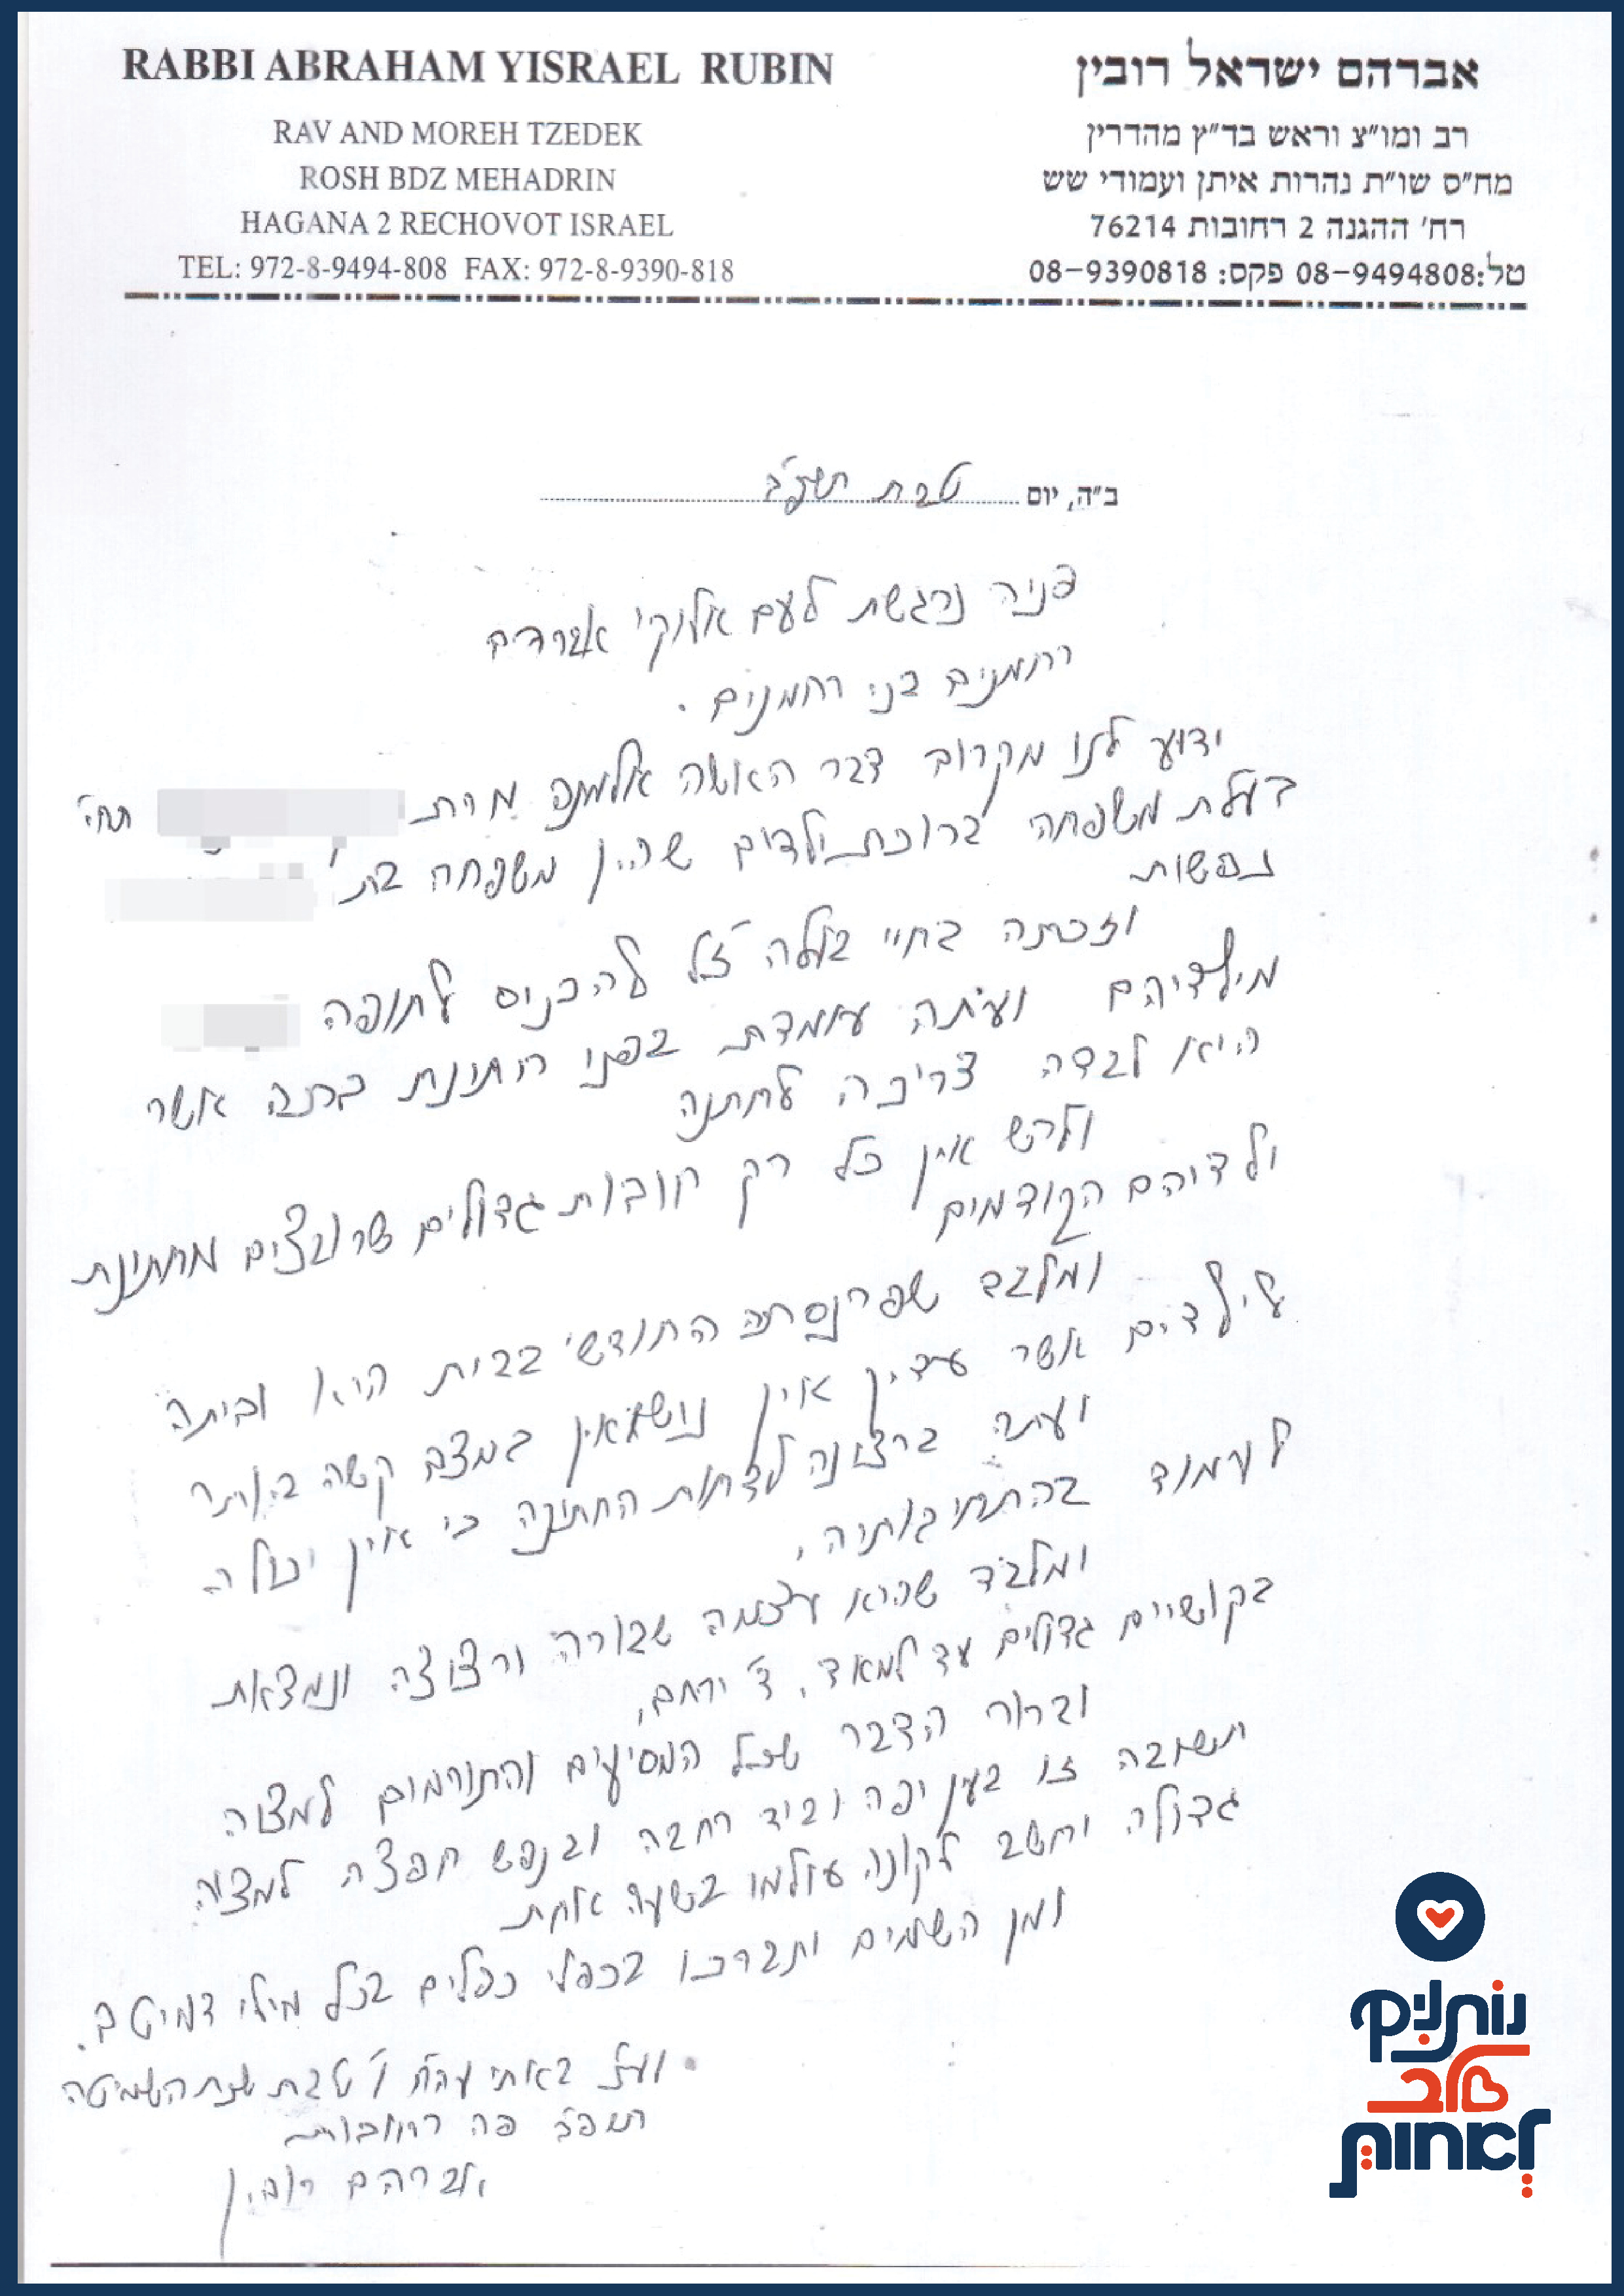 RABBI ABRAHAM YISRAEL RUBIN
RAV AND MOREH TZEDEK
ROSH BDZ MEHADRIN
HAGANA 2 RECHOVOT ISRAEL
TEL: 972-8-9494-808 FAX: 972-8-9390-818
אברהם ישראל רובין
רב ומו"צ וראש בד"ץ מהדרין
מח"ס שו"ת נהרות איתן ועמודי שש
רח' ההגנה 2 רחובות 76214
טל:08-9494808 פקס: 08-9390818
ב"ה, יום טבת תשפ"ב
פניה נרגשת לעם אלוקי אברהם
רחמנים בני רחמנים.
ידוע לנו מקרוב דבר האשה אלמנה מרת תחי'
בעלת משפחה ברוכת ילדים שהין משפחה בת
נפשות
וזכתה בחיי בעלה ז"ל להכניס לחופה
מילדיהם ועתה עומדת בפני חתונת ברנה אשר
היא לבדה צריכה לחתנה
ולרש אין כל רק חובות גדולים שרובצים מחתונת
ילדיהם הקודמים
ומלבד שפרנסתה החודשי בבית היא וביתה
לילדים אשר עדיין אין נושאין במצב קשה ביותר
ועתה ברצונה לדחות החתונה כי אין יכולה
לעמוד בהתחיבותיה,
ומלבד שהיא עצמה שבורה ורצוצה ונמצאת
בקושיים גדולים עד למאד, ד' ירחם,
וברור הדבר שכל המסיעים והתורמים למצוה
חשובה זו בעין יפה וביד רחבה ובנפש חפצה למצוה
גדולה יחשב לקונה עולמו בשעה אחת
ומן השמים יתברכו בכפלי כפלים בכל מילי דמיטב.
ועז באתי עה"ח ו' טבת שנת השמיטה
תשפ"ב פה רחובות
אברהם רובין
נותנים
בלב
לאחות